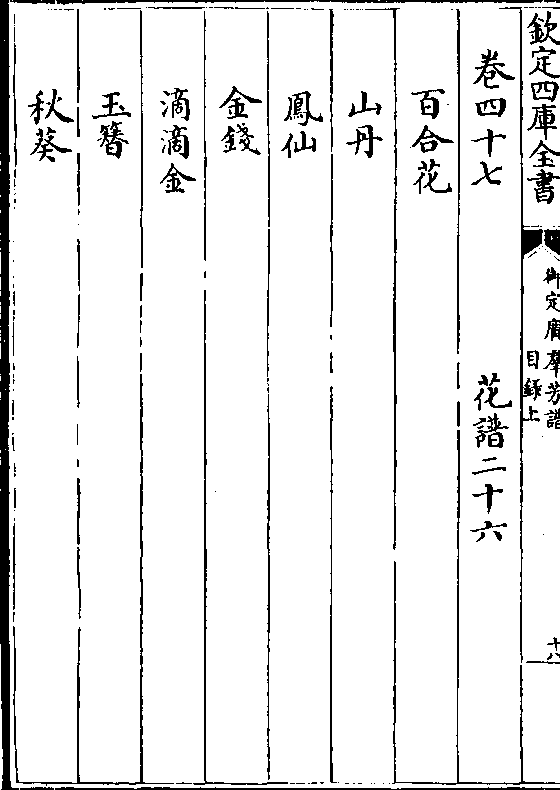 欽定四庫全書
御定廣羣芳譜
目録上
十八
卷四十七 花譜二十六
百合花
山丹
鳳仙
金錢
滴滴金
玉簪
秋葵